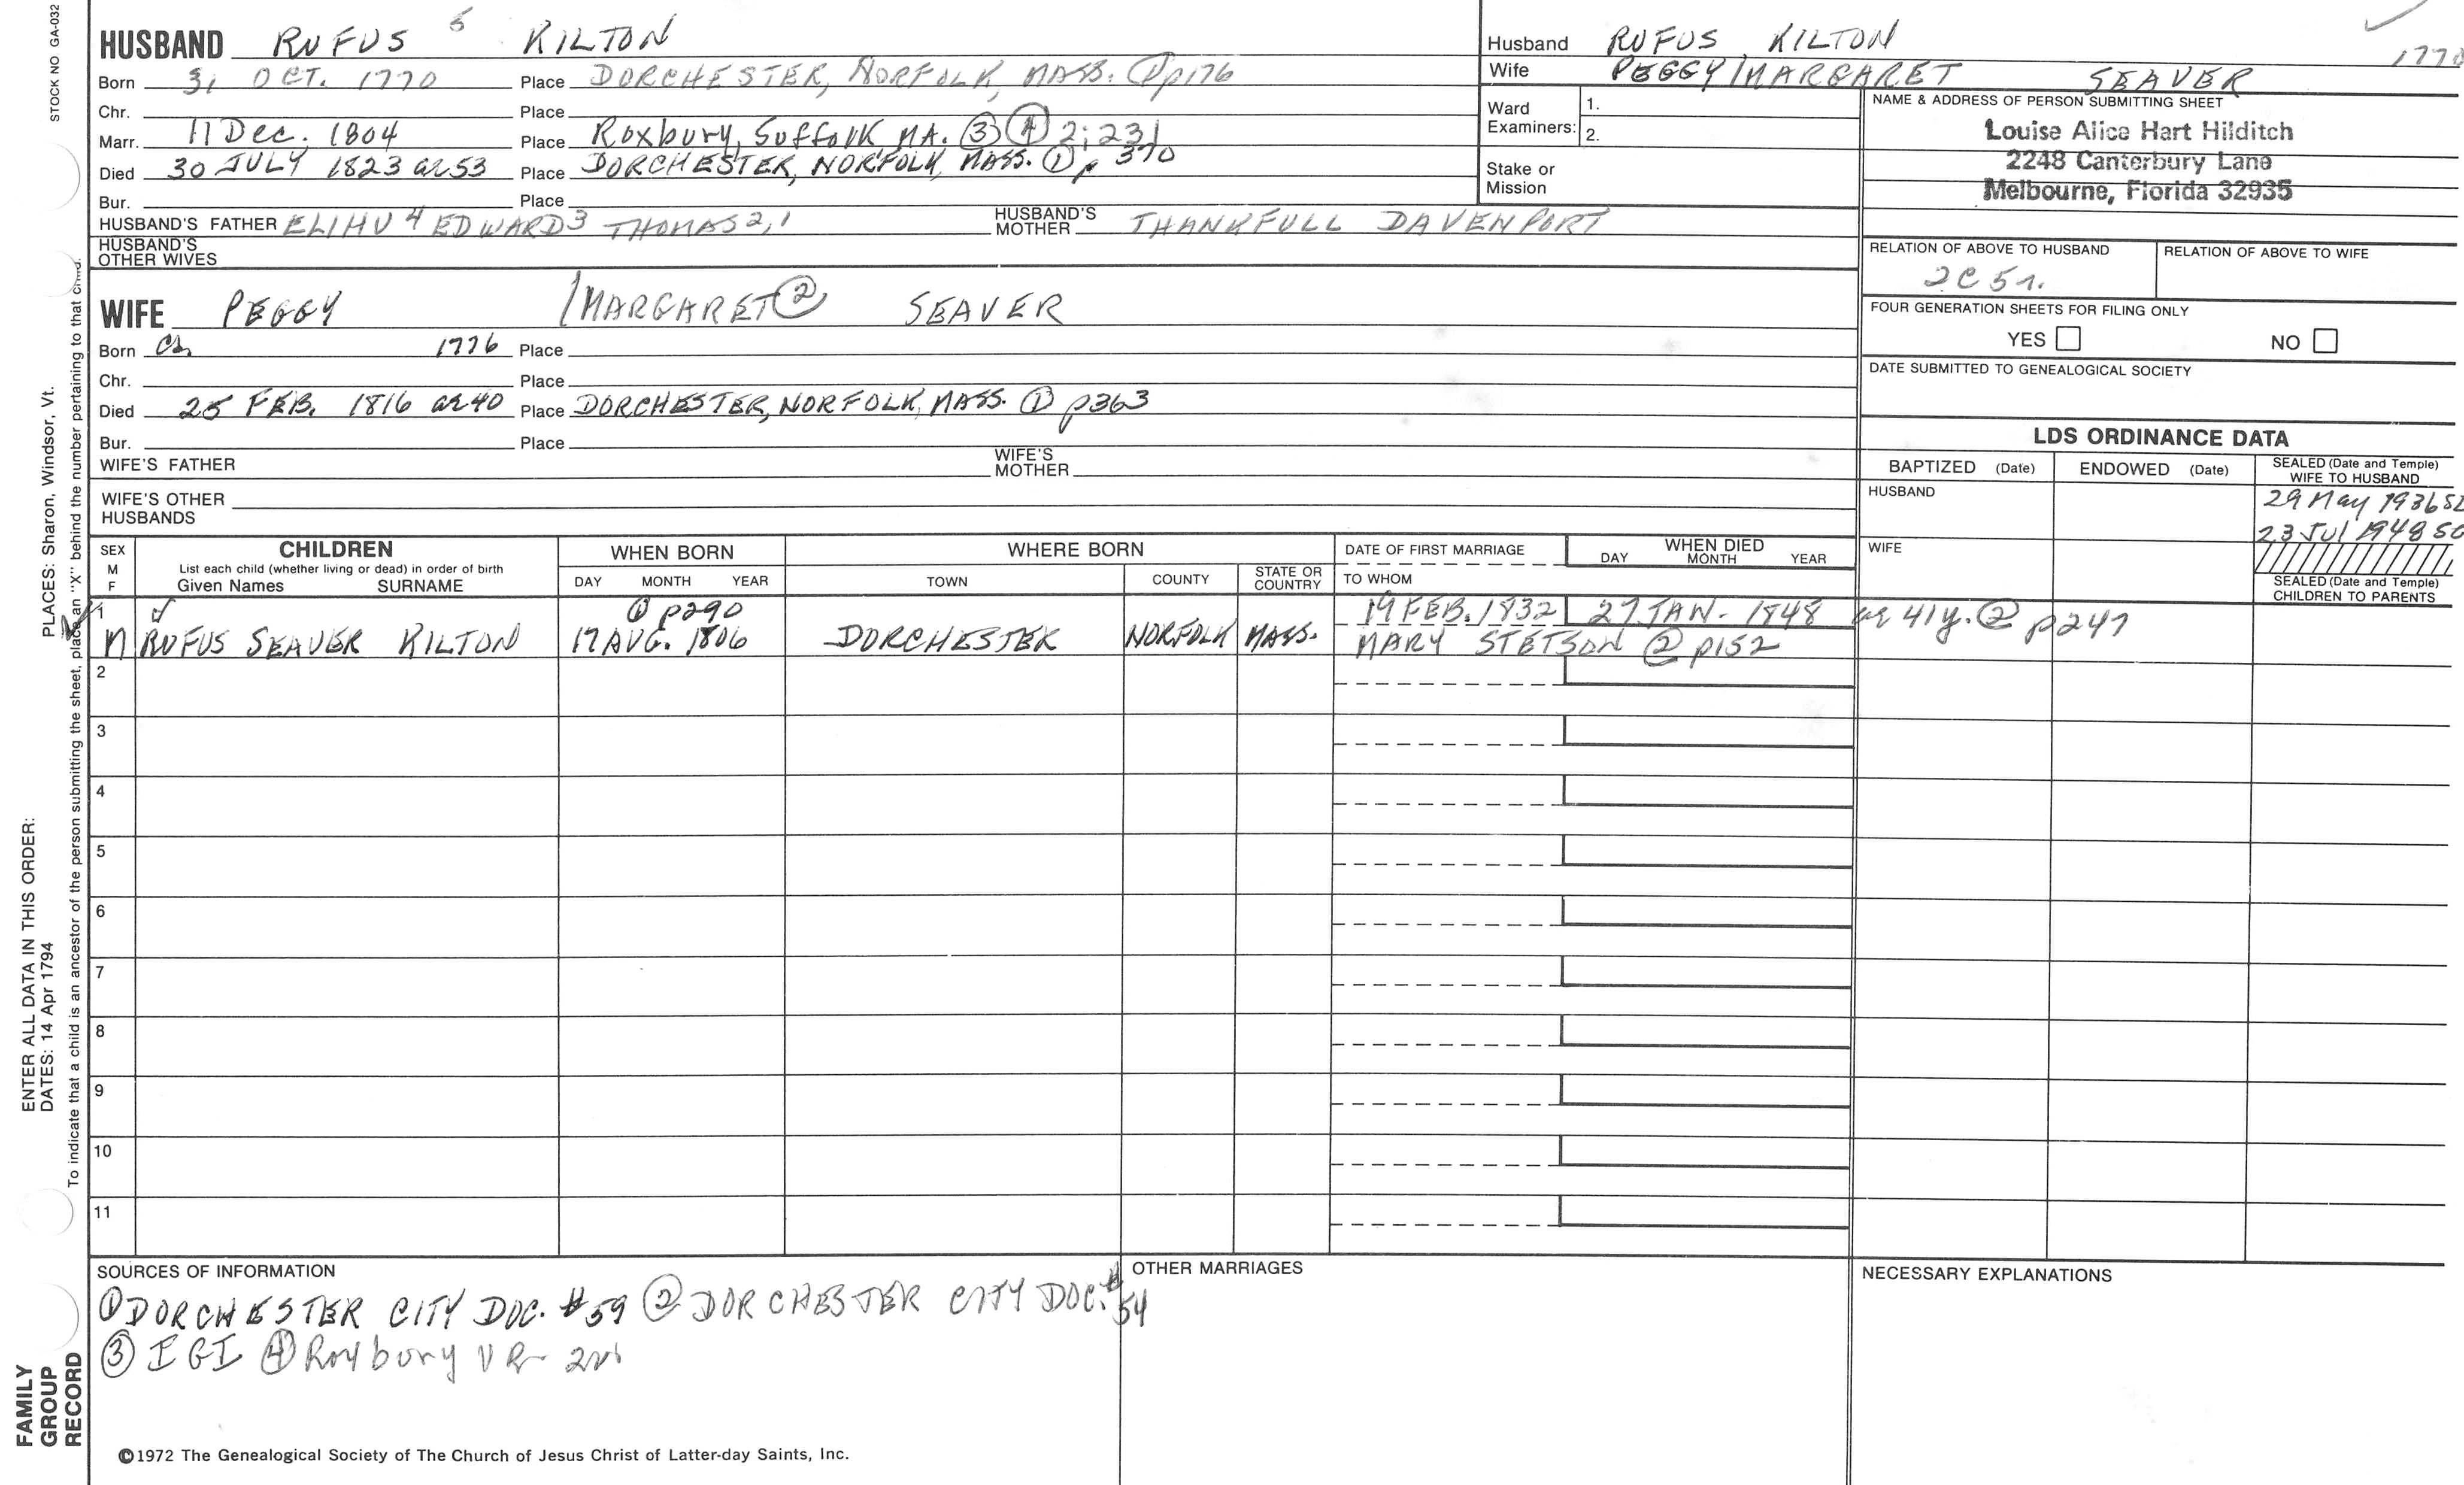 STOCK NO GA-032
HUSBAND RUFUS 5 KILTON
Born 31 OCT. 1770 Place DORCHESTER, NORFOLK, MASS. ① p176
Chr. Place
Marr. 11 Dec. 1804 Place Roxbury, Suffolk MA. ③ ④ 2; 231
Died 30 JULY 1823 ae 53 Place DORCHESTER, NORFOLK, MASS. ① p 370
Bur. Place
HUSBAND'S FATHER ELIHU 4 EDWARD 3 THOMAS 2, 1 HUSBAND'S MOTHER THANKFULL DAVENPORT
HUSBAND'S OTHER WIVES
WIFE PEGGY /MARGARET ② SEAVER
Born Ca. 1776 Place
Chr. Place
Died 25 FEB. 1816 ae 40 Place DORCHESTER, NORFOLK, MASS. ① p363
Bur. Place
WIFE'S FATHER WIFE'S MOTHER
WIFE'S OTHER HUSBANDS
Husband RUFUS KILTON 1770
Wife PEGGY/MARGARET SEAVER
Ward Examiners: 1.
2.
Stake or Mission
NAME & ADDRESS OF PERSON SUBMITTING SHEET
Louise Alice Hart Hilditch
2248 Canterbury Lane
Melbourne, Florida 32935
RELATION OF ABOVE TO HUSBAND RELATION OF ABOVE TO WIFE
2C 5r.
FOUR GENERATION SHEETS FOR FILING ONLY
YES NO
DATE SUBMITTED TO GENEALOGICAL SOCIETY
LDS ORDINANCE DATA
BAPTIZED (Date) ENDOWED (Date) SEALED (Date and Temple) WIFE TO HUSBAND
HUSBAND 29 May 1936 SL
23 Jul 1948
WIFE
SEALED (Date and Temple) CHILDREN TO PARENTS
SEX M F CHILDREN WHEN BORN WHERE BORN DATE OF FIRST MARRIAGE WHEN DIED
List each child (whether living or dead) in order of birth DAY MONTH YEAR
Given Names SURNAME DAY MONTH YEAR TOWN COUNTY STATE OR COUNTRY TO WHOM
1 ① p290 19 FEB. 1832 27 JAN. 1848 ae 41y. ② p247
M RUFUS SEAVER KILTON 17 AUG. 1806 DORCHESTER NORFOLK MASS. MARY STETSON ② p152
2
3
4
5
6
7
8
9
10
11
SOURCES OF INFORMATION
① DORCHESTER CITY DOC. #59 ② DORCHESTER CITY DOC. # 54
③ IGI ④ Roxbury VR
OTHER MARRIAGES
NECESSARY EXPLANATIONS
©1972 The Genealogical Society of The Church of Jesus Christ of Latter-day Saints, Inc.
ENTER ALL DATA IN THIS ORDER:
DATES: 14 Apr 1794 PLACES: Sharon, Windsor, Vt.
To indicate that a child is an ancestor of the person submitting the sheet, place an "X" behind the number pertaining to that child.
FAMILY
GROUP
RECORD